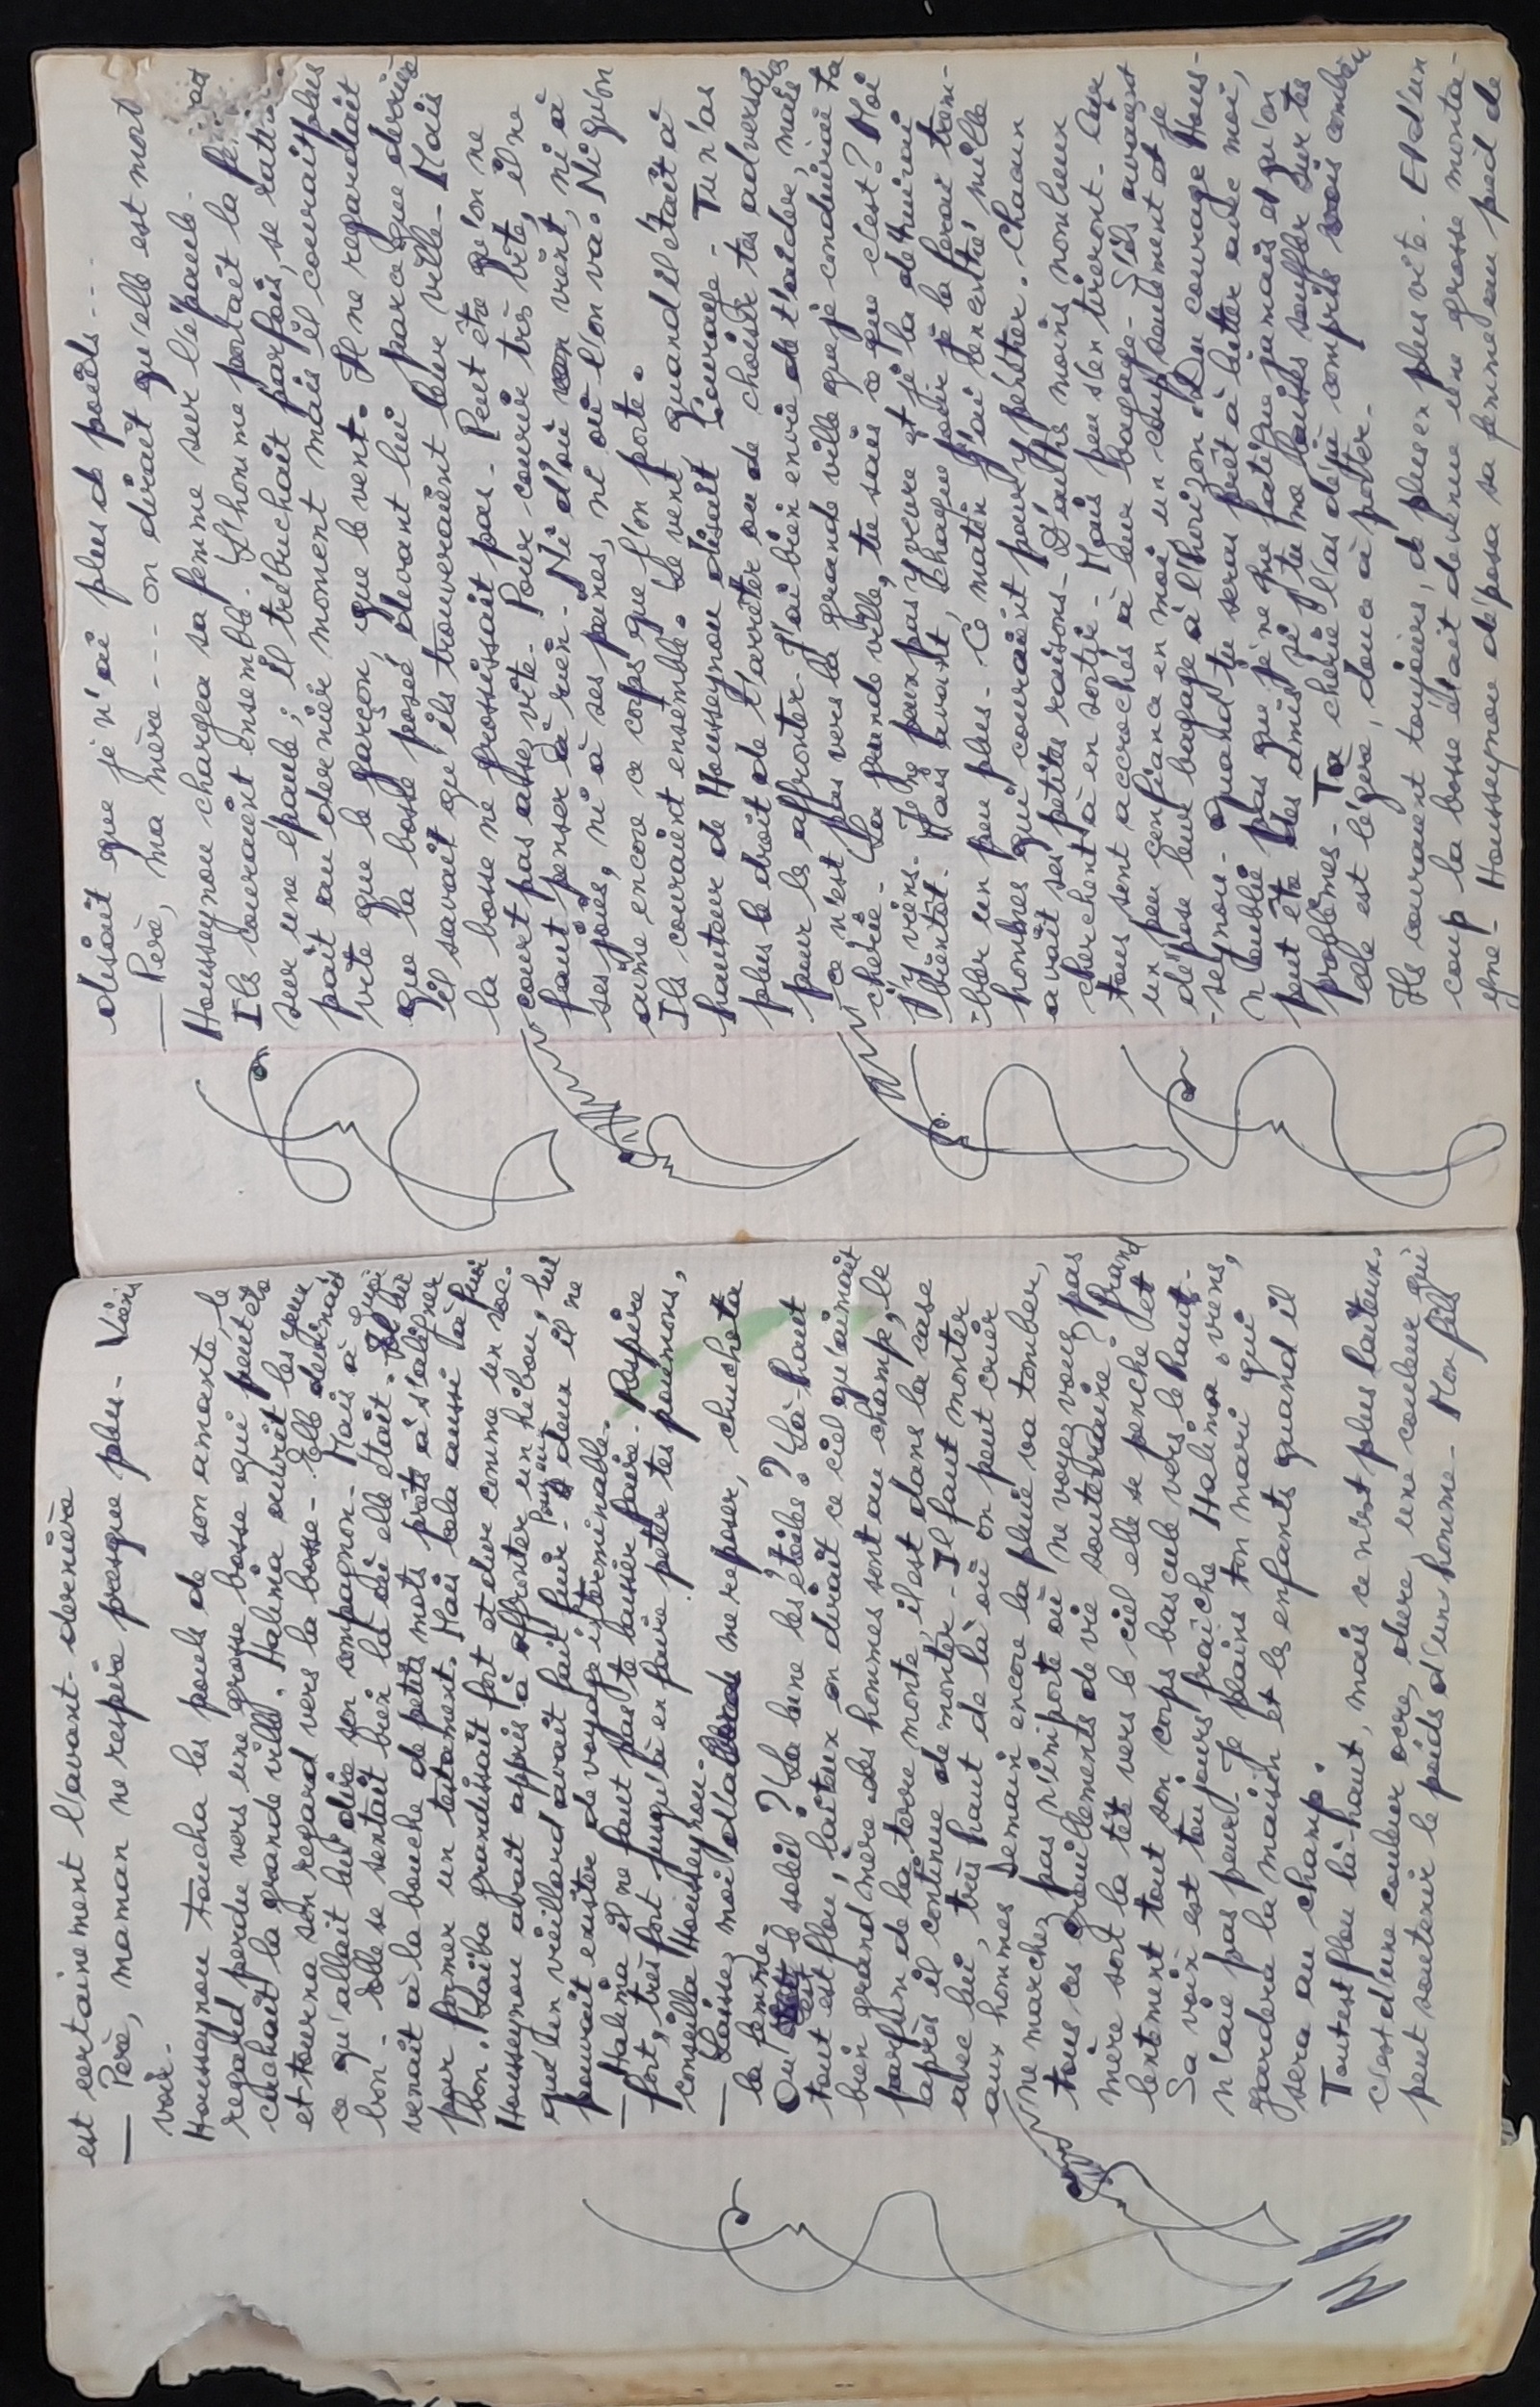 est certainement l'avant-dernière
— Père, maman ne respire presque plus. Viens
voir.
Housseynou toucha les pouls de son amante, le
regard perdu vers une grosse bosse qui peut être
cachait la grande ville. Halima ouvrit les yeux
et tourna son regard vers la bosse. Elle devinait
ce qu'allait lui dire son compagnon. Mais à quoi
bon. Elle se sentait bien là où elle était. Il lui
venait à la bouche de petits mots prêts à s'aligner
pour former un testament. Mais cela aussi à quoi
bon. Laïba grandissait fort et dur comme un roc.
Housseynou avait appris à affronter un hébou, lui
qu'un vieillard avait fait fuir. Pour eux deux il ne
pouvait exister de voyage interminable.
— Halima il ne faut pas te laisser faire. Respire
fort, très fort jusqu'à en faire péter tes poumons,
conseilla Housseynou.
— Laisse, moi d'abord me reposer, chuchota
la femme.
Où est le soleil ? La lune les étoiles ? Là-haut
tout est flou, laiteux on dirait ce ciel qu'aimait
bien grand mère. Les hommes sont au champ, le
parfum de la terre monte, il est dans la case
après il continue de monter. Il faut monter
avec lui, très haut de là où on peut crier
aux hommes demain encore la pluie va tomber,
ne marchez pas n'importe où, ne voyez vous pas
tous ces grouillements de vie souterraine ? Grand
mère sort la tête vers le ciel elle se penche et
lentement tout son corps bascule vers le haut.
Sa voix est toujours fraîche Halima, viens,
n'aie pas peur. Je plains ton mari qui
gardera la maison et les enfants quand il
sera au champ.
Tout est flou là-haut, mais ce n'est plus laiteux.
c'est d'une couleur ocre, dure, une couleur qui
peut soutenir le poids d'un homme. Mon fils
disait que je n'ai plus de poids...
— Père, ma mère... on dirait qu'elle est mort
Housseynou chargea sa femme sur l'épaule.
Ils couraient ensemble. L'homme portait la
sur une épaule ; il trébuchait parfois, se
pait au dernier moment mais il courait plus
vite que le garçon, que le vent. Il ne regardait
que la bosse posée devant lui parce que derrière
il savait qu'ils trouveraient leur ville. Mais
la bosse ne grossissait pas. Peut être qu'on ne
court pas assez vite. Pour courir très vite, il ne
faut penser à rien. Ni d'où l'on vient, ni à
ses joues, ni à ses peines, ni où l'on va. Ni qu'on
aime encore ce corps que l'on porte.
Ils couraient ensemble. Le vent, quand il était à
hauteur de Housseynou disait "Courage. Tu n'as
plus le droit de t'arrêter ou de choisir tes adversaires
pour les affronter. J'ai bien envie de t'aider, mais
ce n'est pas vers la grande ville que je conduirai ta
chérie. La grande ville, tu sais ce que c'est ? Moi
j'y viens. Je ne peux pas y vivre et je la détruirai
bientôt. Mais avant, chaque jour je la ferai trem-
bler un peu plus. Ce matin j'ai rencontré mille
hommes qui couraient pour y pénétrer. Chacun
avait ses petites raisons. D'autres moins nombreux
cherchent à en sortir. Mais peu s'en tireront. Car
tous sont accrochés à leur bagage. S'ils avaient
un peu confiance en moi, un coup seulement et je
dépose leur bagage à l'horizon. Du courage Hous-
-seynou. Quand tu seras prêt à lutter avec moi,
n'oublie pas que je ne me fatigue jamais et qu'on
peut être des amis si tu me laisses souffler sur tes
problèmes. Ta chérie l'as déjà compris vois combien
elle est légère, douce à porter.
Ils couraient toujours, de plus en plus vite. Et d'un
coup la bosse était devenue une grosse monta-
gne. Housseynou déposa sa femme au pied de